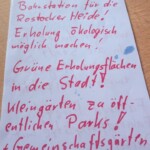 Bahnstation für die
Rostocker Heide!
Erholung ökologisch
möglich machen!
Grüne Erholungsflächen
in die Stadt!
Kleingärten zu öf-
fentlichen Parks!
+Gemeinschaftsgärten